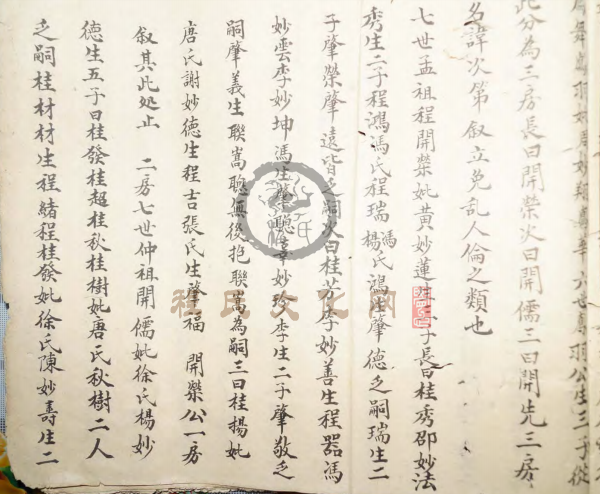 爲舜爲羽如居如翔爲華六世爲羽公生三子從
此分為三房長曰開榮次曰開儒三曰開先三房
名諱次第叙立免乱人倫之類也
七世孟祖程開榮妣黃妙蓮生三子長曰桂秀邵妙法
秀生二子程鴻馮氏程瑞馮楊氏鴻生肇德乏嗣瑞生二
子肇榮肇遠皆乏嗣次曰桂芳李妙善生程器馮
妙雲李妙坤馮生肇聰李妙珍李生二子肇敬乏
嗣肇義生聯嵩聰無後抱聯嵩為嗣三曰桂揚妣
唐氏謝妙德生程吉張氏生肇福 開榮公一房
叙其此処止 二房七世仲祖開儒妣徐氏楊妙
德生五子曰桂發桂超桂秋桂樹妣唐氏秋樹二人
乏嗣桂材材生程緒程桂發妣徐氏陳妙壽生二
程氏文化网